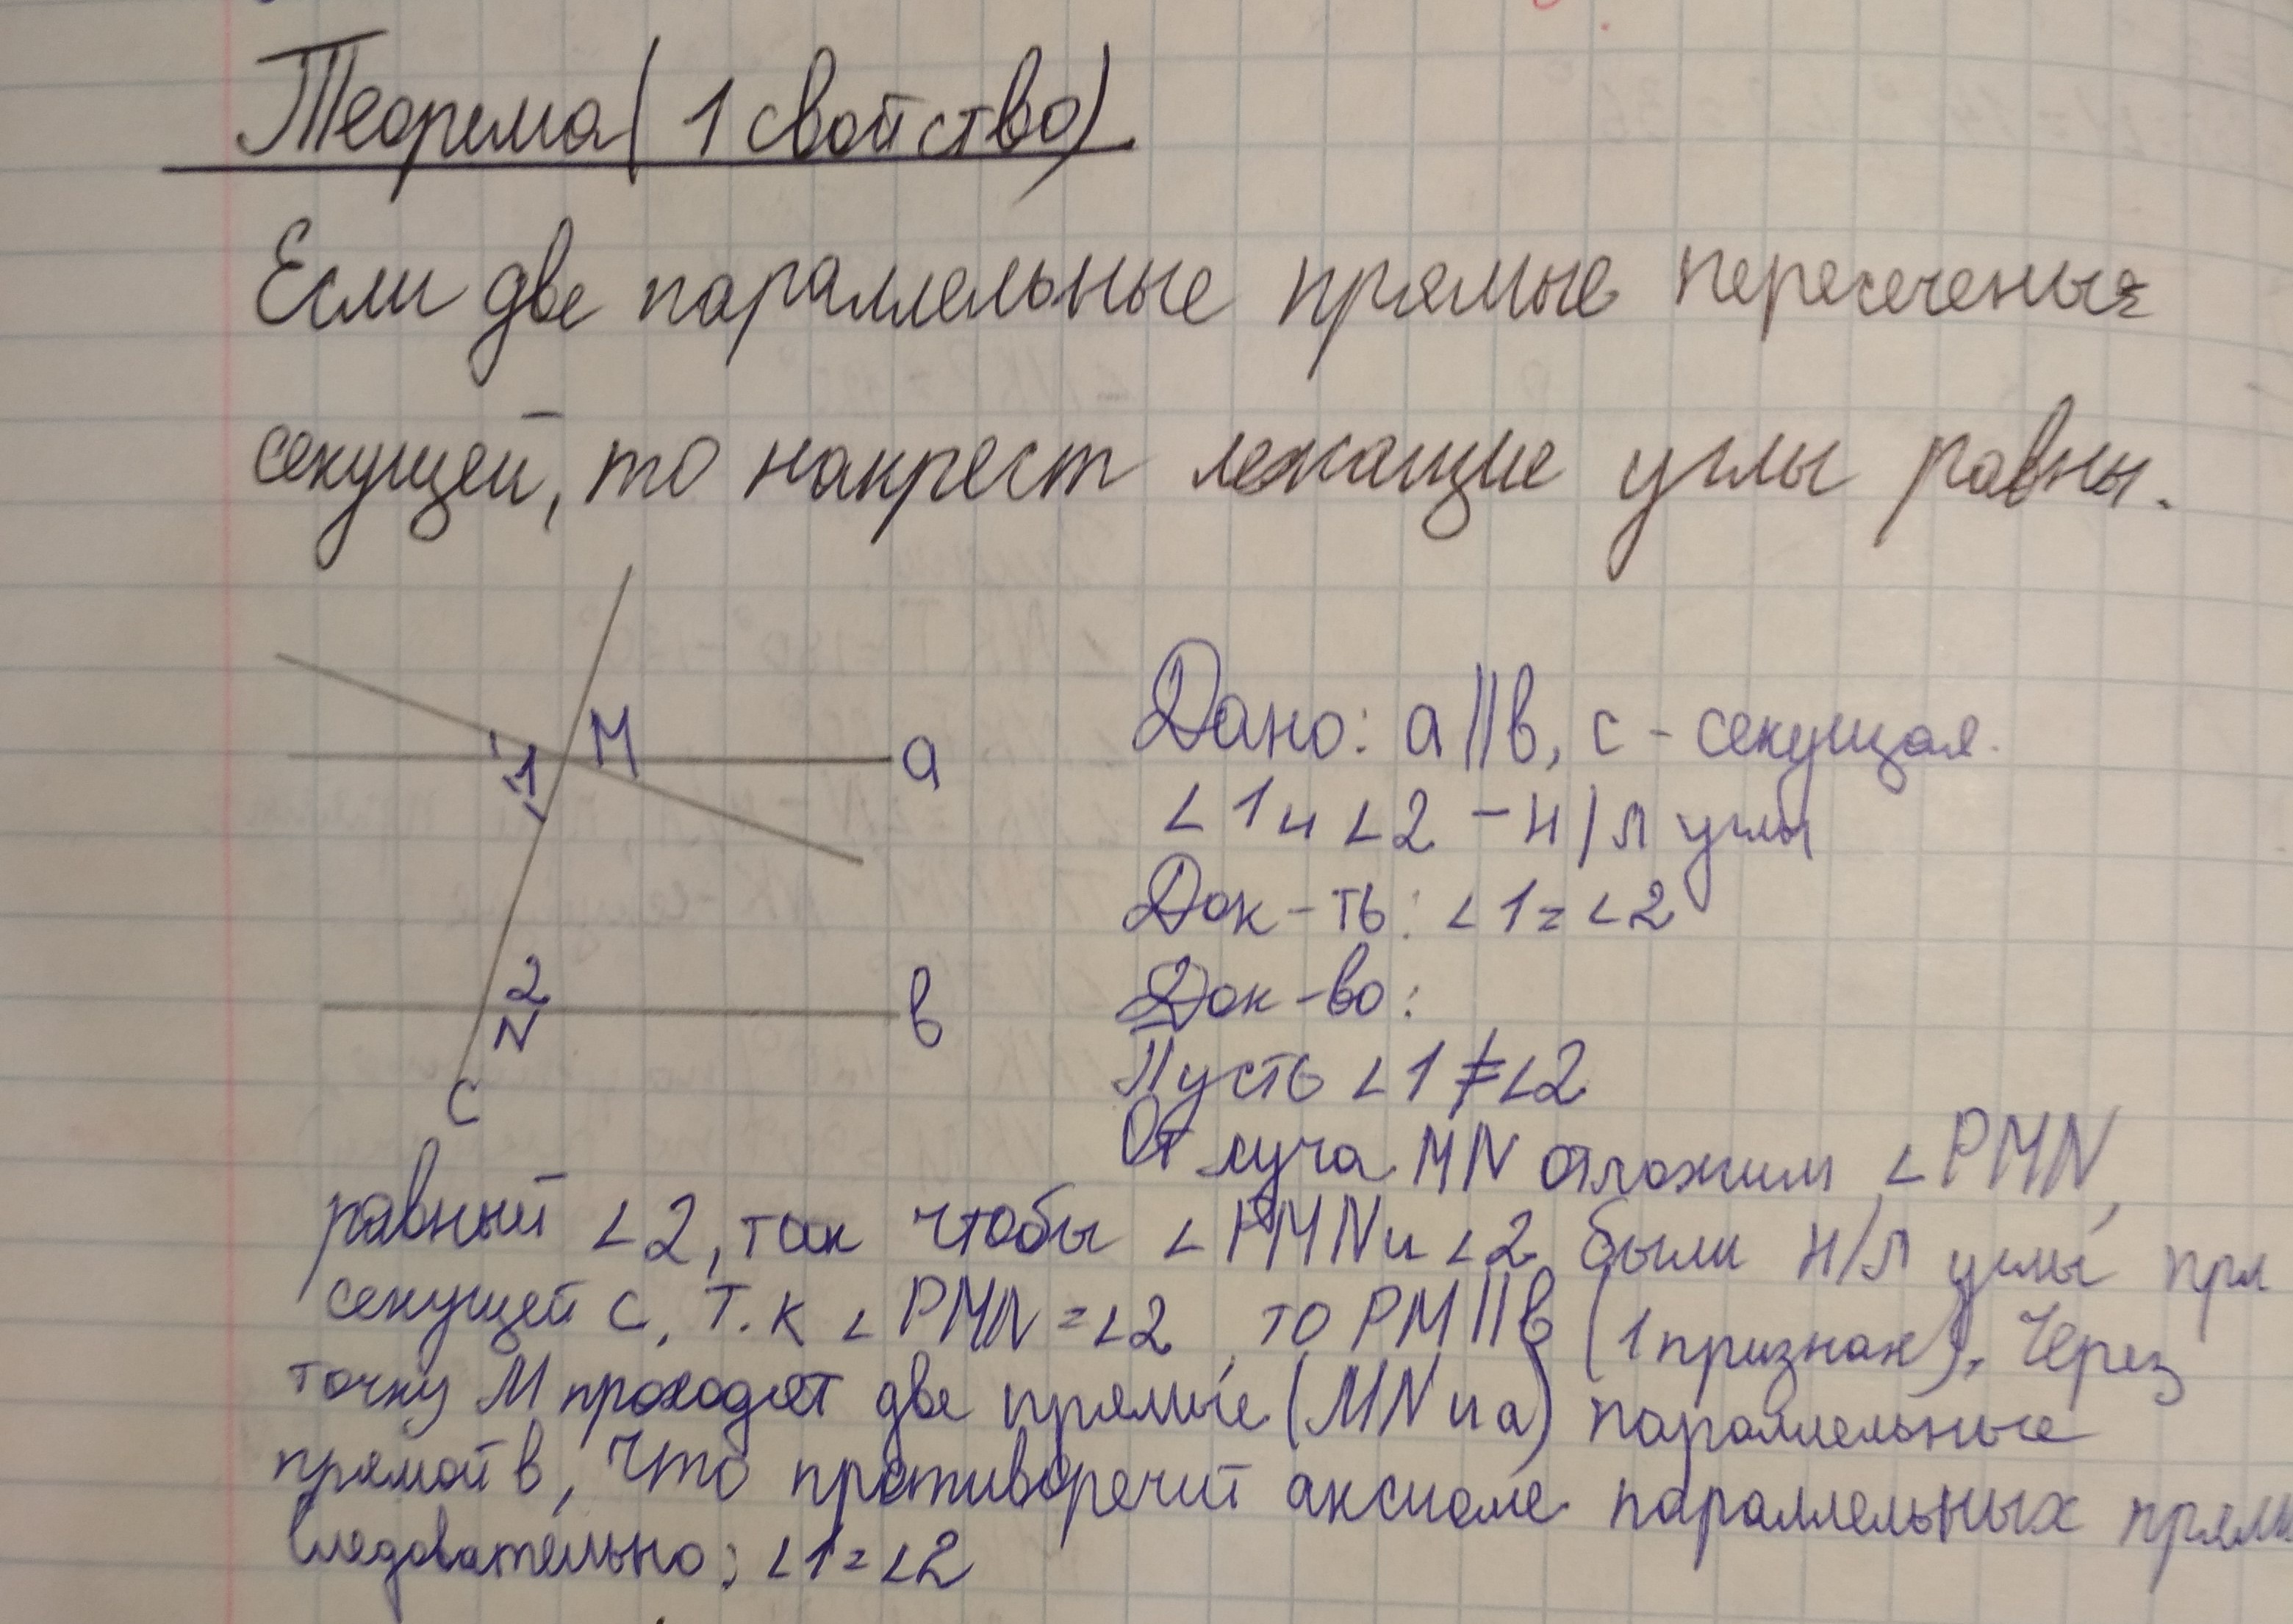 Теорема (1 свойство)
Если две параллельные прямые пересечены
секущей, то накрест лежащие углы равны.
M
1
a
2
N
в
c
Дано: a||в, c - секущая.
∠1 и ∠2 - н/л углы
Док-ть: ∠1=∠2
Док-во:
Пусть ∠1≠∠2
От луча MN отложим ∠PMN,
равный ∠2, так чтобы ∠PMN и ∠2 были н/л углы при
секущей c, т.к ∠PMN=∠2, то PM||в (1 признак). Через
точку M проходят две прямые (MN и a) параллельные
прямой в, что противоречит аксиоме параллельных прям
следовательно: ∠1=∠2